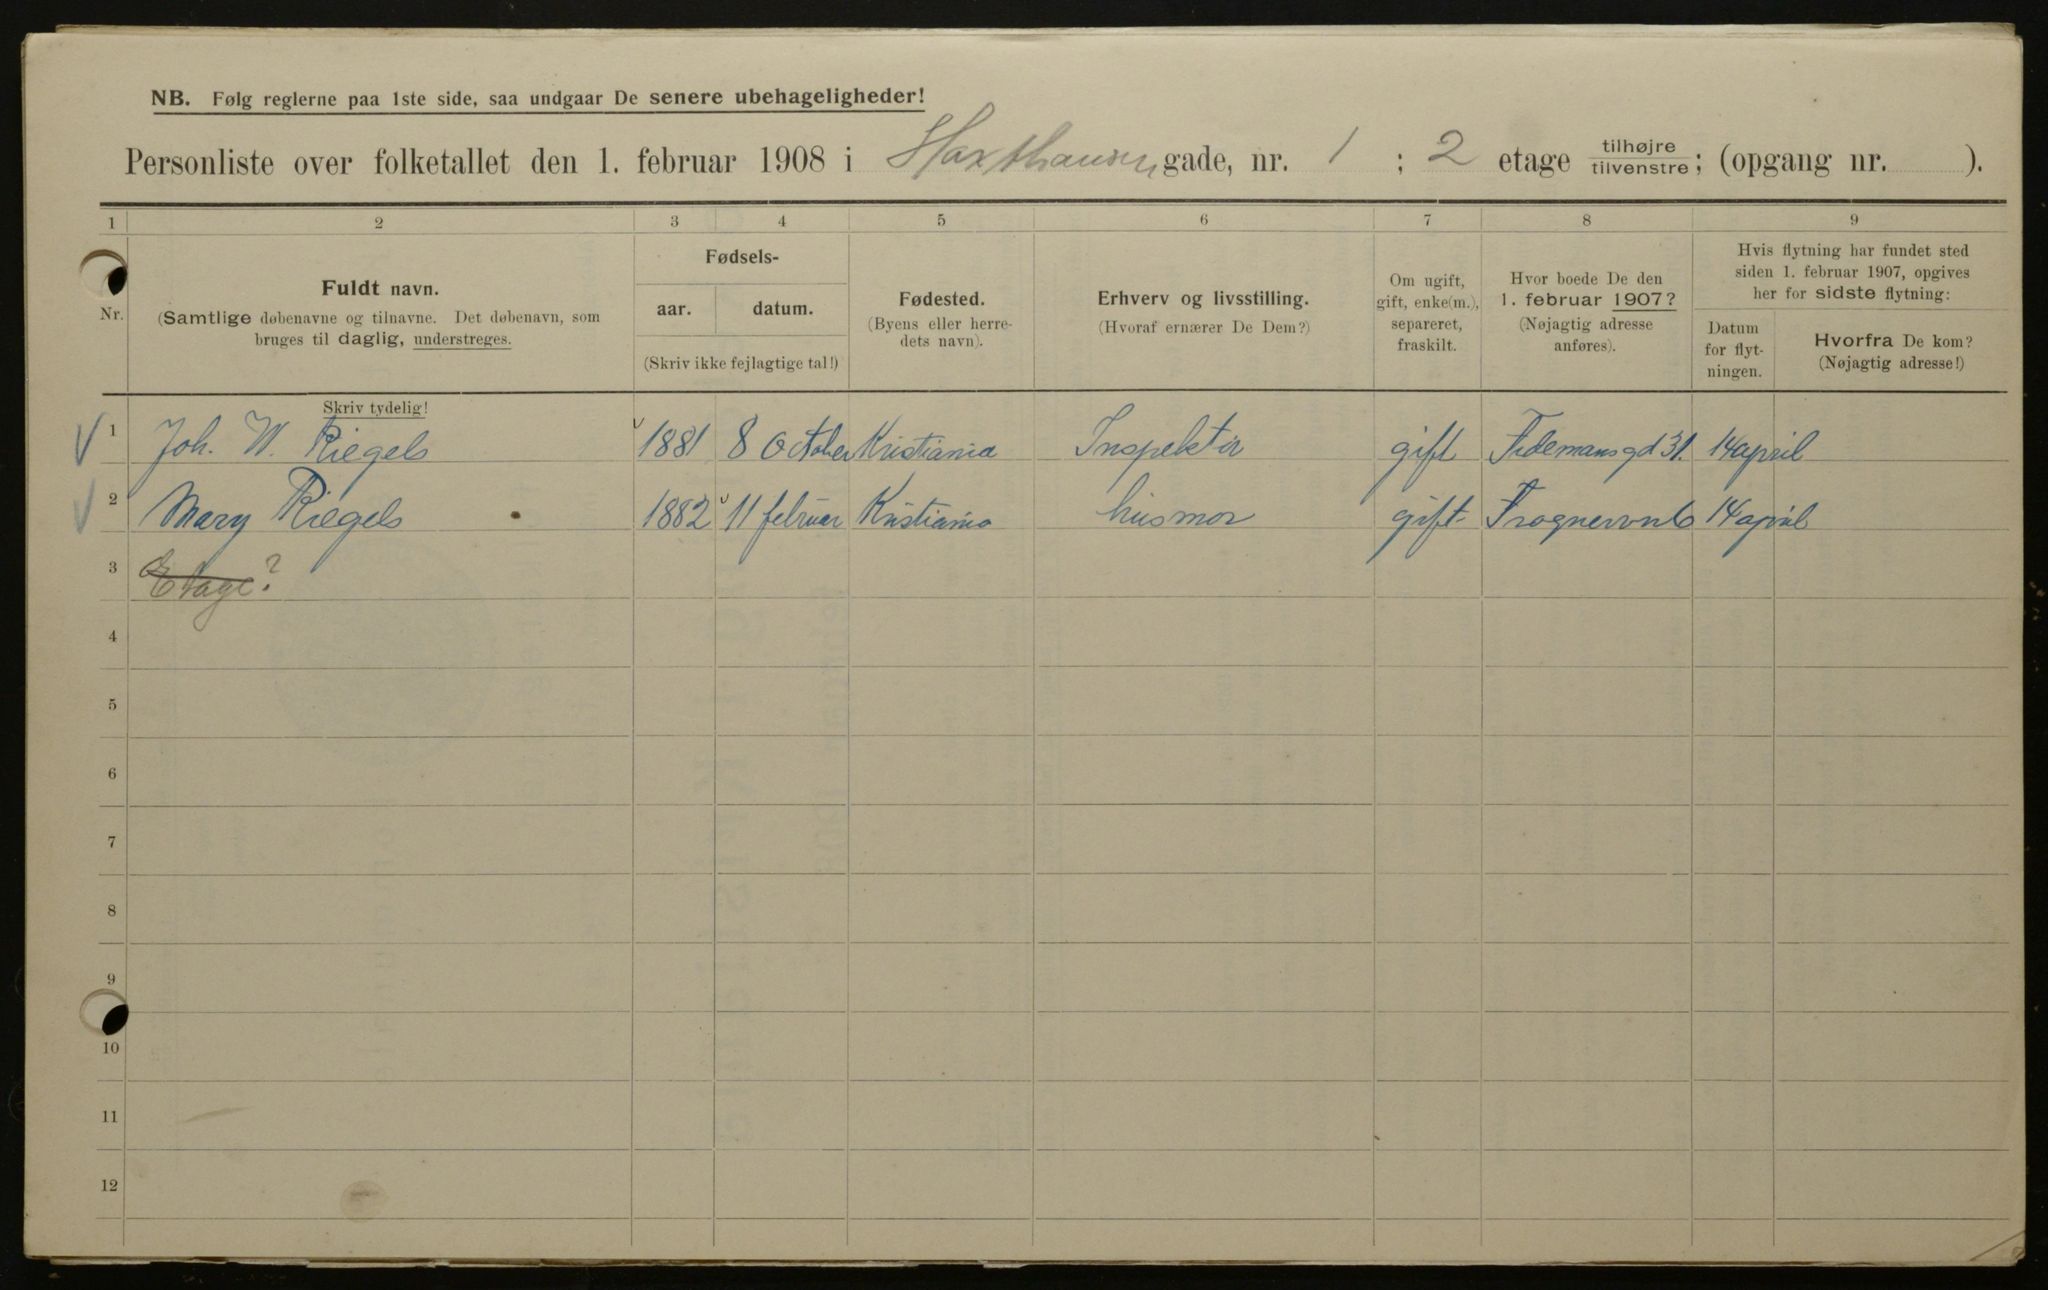 NB. Følg reglerne paa 1ste side, saa undgaar De senere ubehageligheder!
Personliste over folketallet den 1. februar 1908 i Haxthausen gade, nr. 1 ; 2 etage tilhøjre tilvenstre ; (opgang nr. ).
1 2 3 4 5 6 7 8 9
Nr.
Fuldt navn.
(Samtlige døbenavne og tilnavne. Det døbenavn, som
bruges til daglig, understreges.
Fødsels-
aar. datum.
(Skriv ikke fejlagtige tal!)
Fødested.
(Byens eller herre-
dets navn).
Erhverv og livsstilling.
(Hvoraf ernærer De Dem?)
Om ugift,
gift, enke(m.),
separeret,
fraskilt.
Hvor boede De den
1. februar 1907?
(Nøjagtig adresse
anføres).
Hvis flytning har fundet sted
siden 1. februar 1907, opgives
her for sidste flytning:
Datum
for flyt-
ningen.
Hvorfra De kom?
(Nøjagtig adresse!)
Skriv tydelig!
1 Joh. W. Riegels 1881 8 October Kristiania Inspektör gift Tidemansgd 31. 14 april
2 Mary Riegels 1882 11 februar Kristiania husmor gift Frognervn 6 14 april
3 Etage?
4
5
6
7
8
9
10
11
12